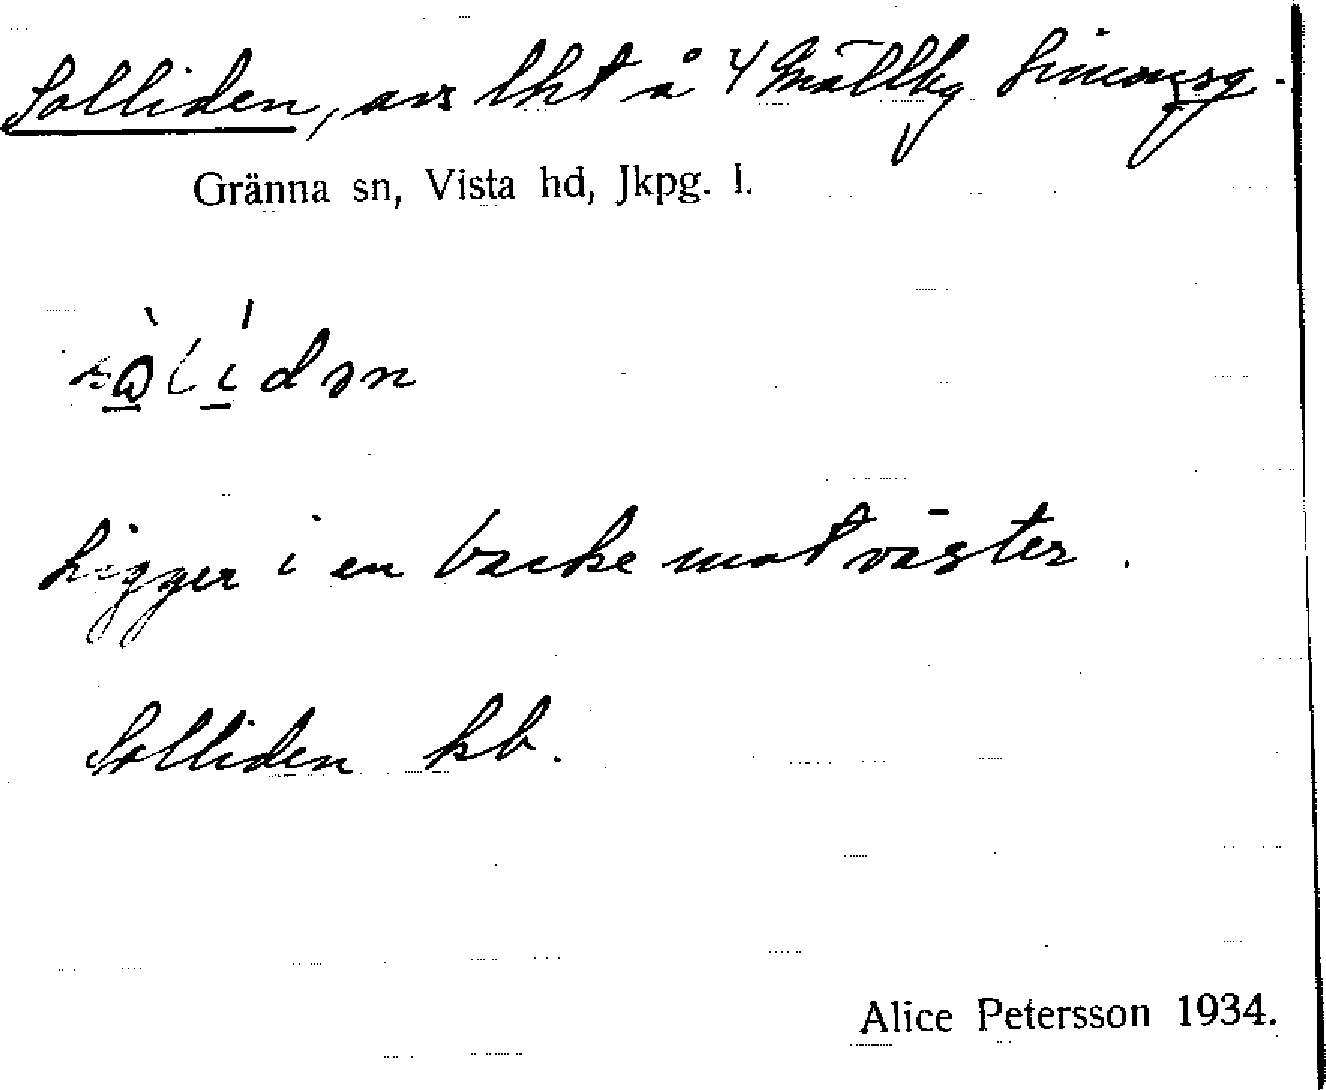 Solliden, avs lht å 4 Mällby Simonsg.
Gränna sn, Vista hd, Jkpg. l.
Ligger i en backe mot väster.
Solliden kb.
Alice Petersson 1934.